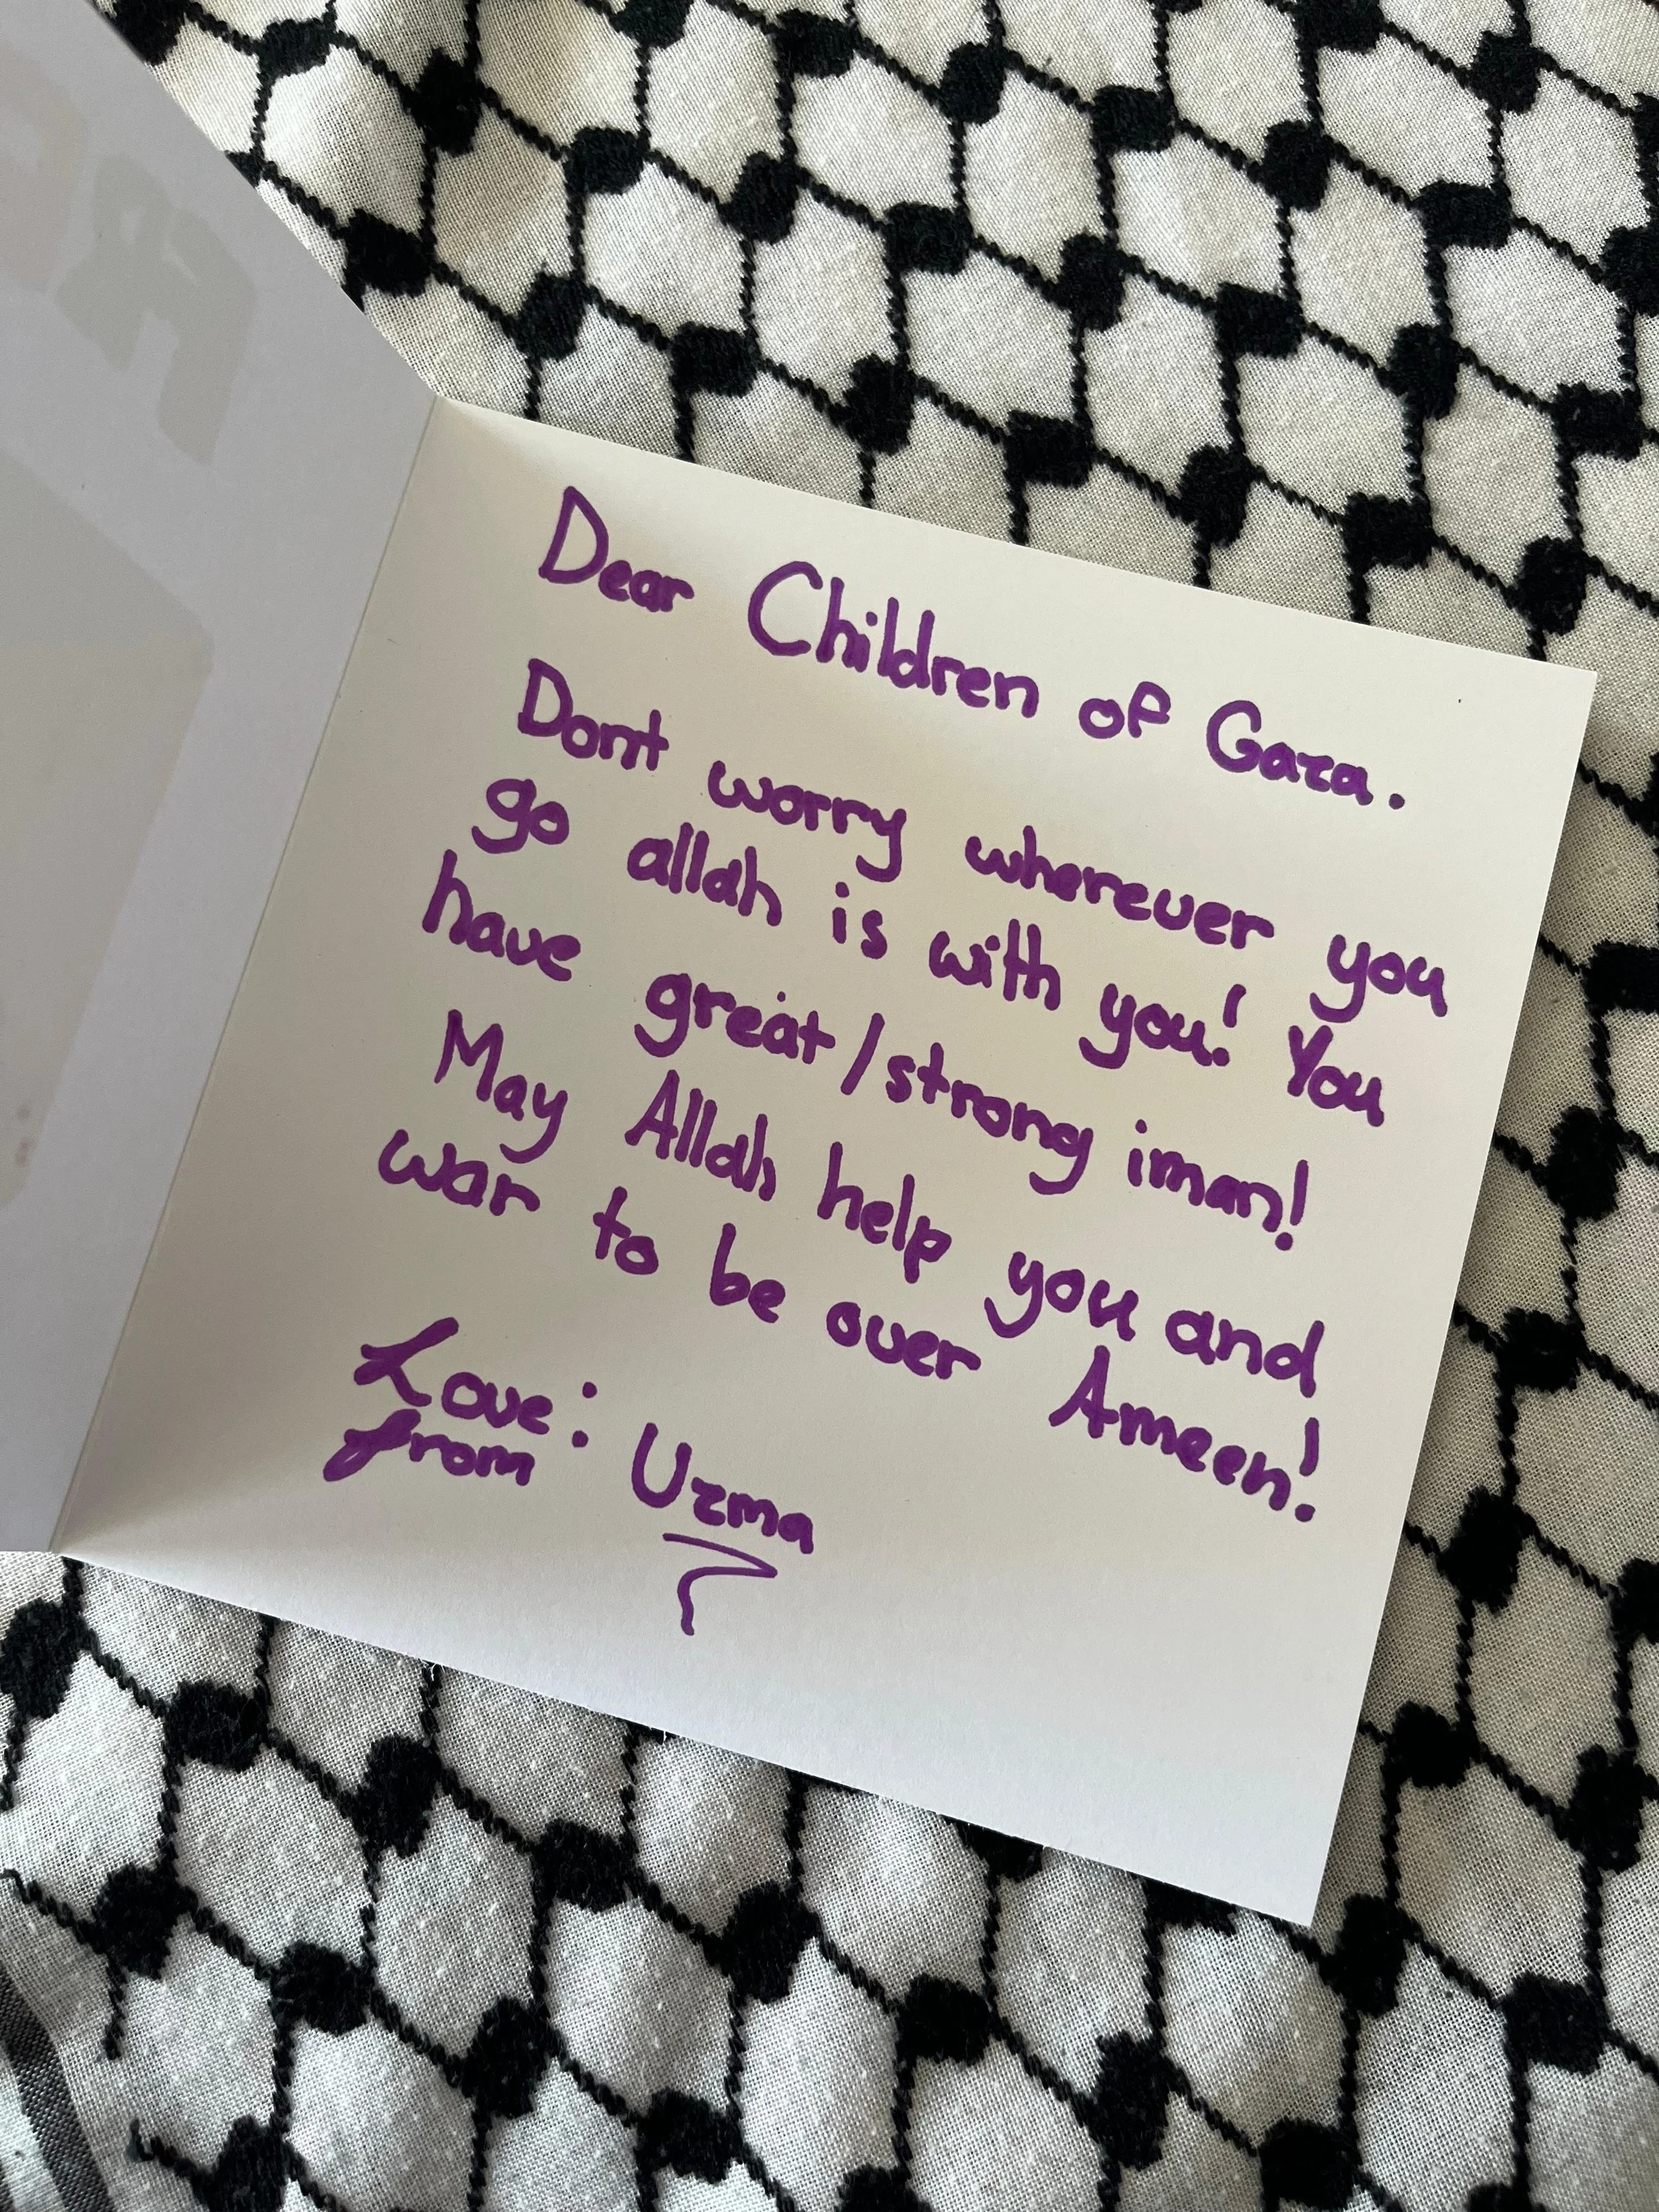 Dear Children of Gaza.
Dont worry wherever you
go allah is with you! You
have great/strong iman!
May Allah help you and
war to be over Ameen!
Love: Uzma
from